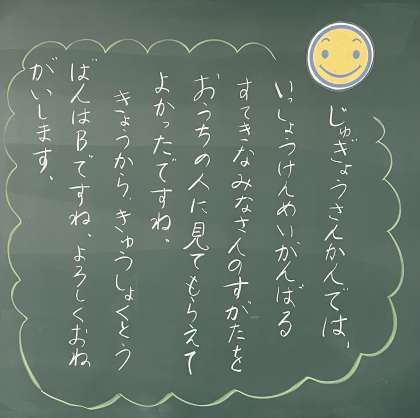 じゅぎょうさんかんでは、
いっしょうけんめいがんばる
すてきなみなさんのすがたを
おうちの人に見てもらえて
よかったですね。
きょうから、きゅうしょくとう
ばんはBですね。よろしくおね
がいします。